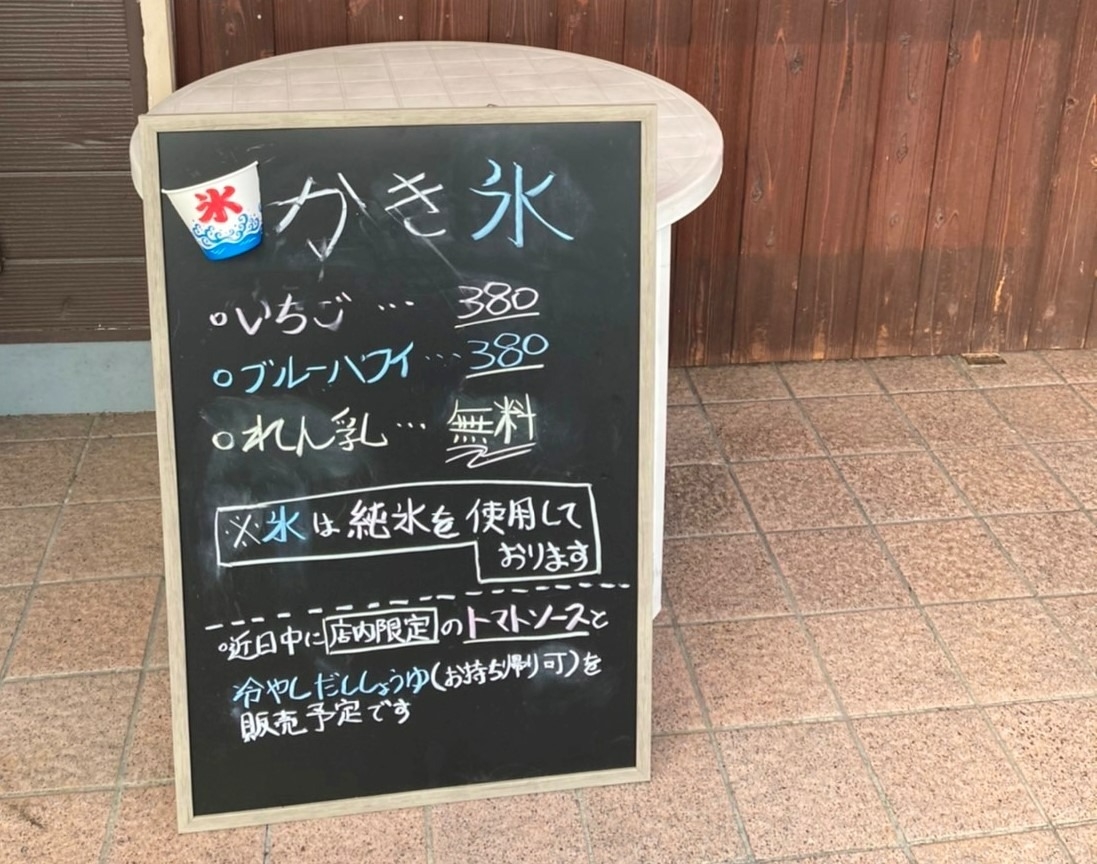 氷
かき氷
いちご … 380
ブルーハワイ … 380
れん乳 … 無料
※氷は純氷を使用して
おります
近日中に店内限定のトマトソースと
冷やしだししょうゆ(お持ち帰り可)を
販売予定です